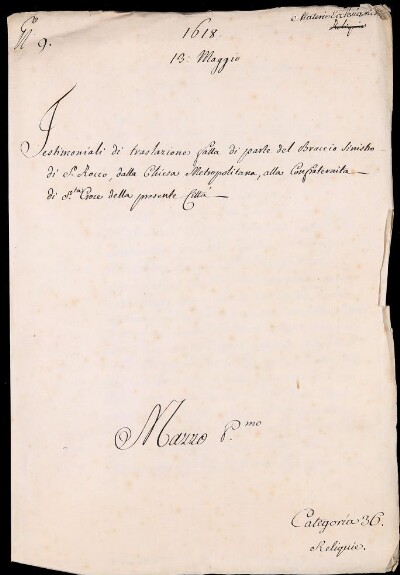 N.º 9.
Materie Ecclesiastiche
Reliquie
1618
13. Maggio
Testimoniali di traslazione fatta di parte del Braccio sinistro
di S.n Rocco, dalla Chiesa Metropolitana, alla Confraternita
di S.ta Croce della presente Città
Mazzo P.mo
Categoria 36.
Reliquie.